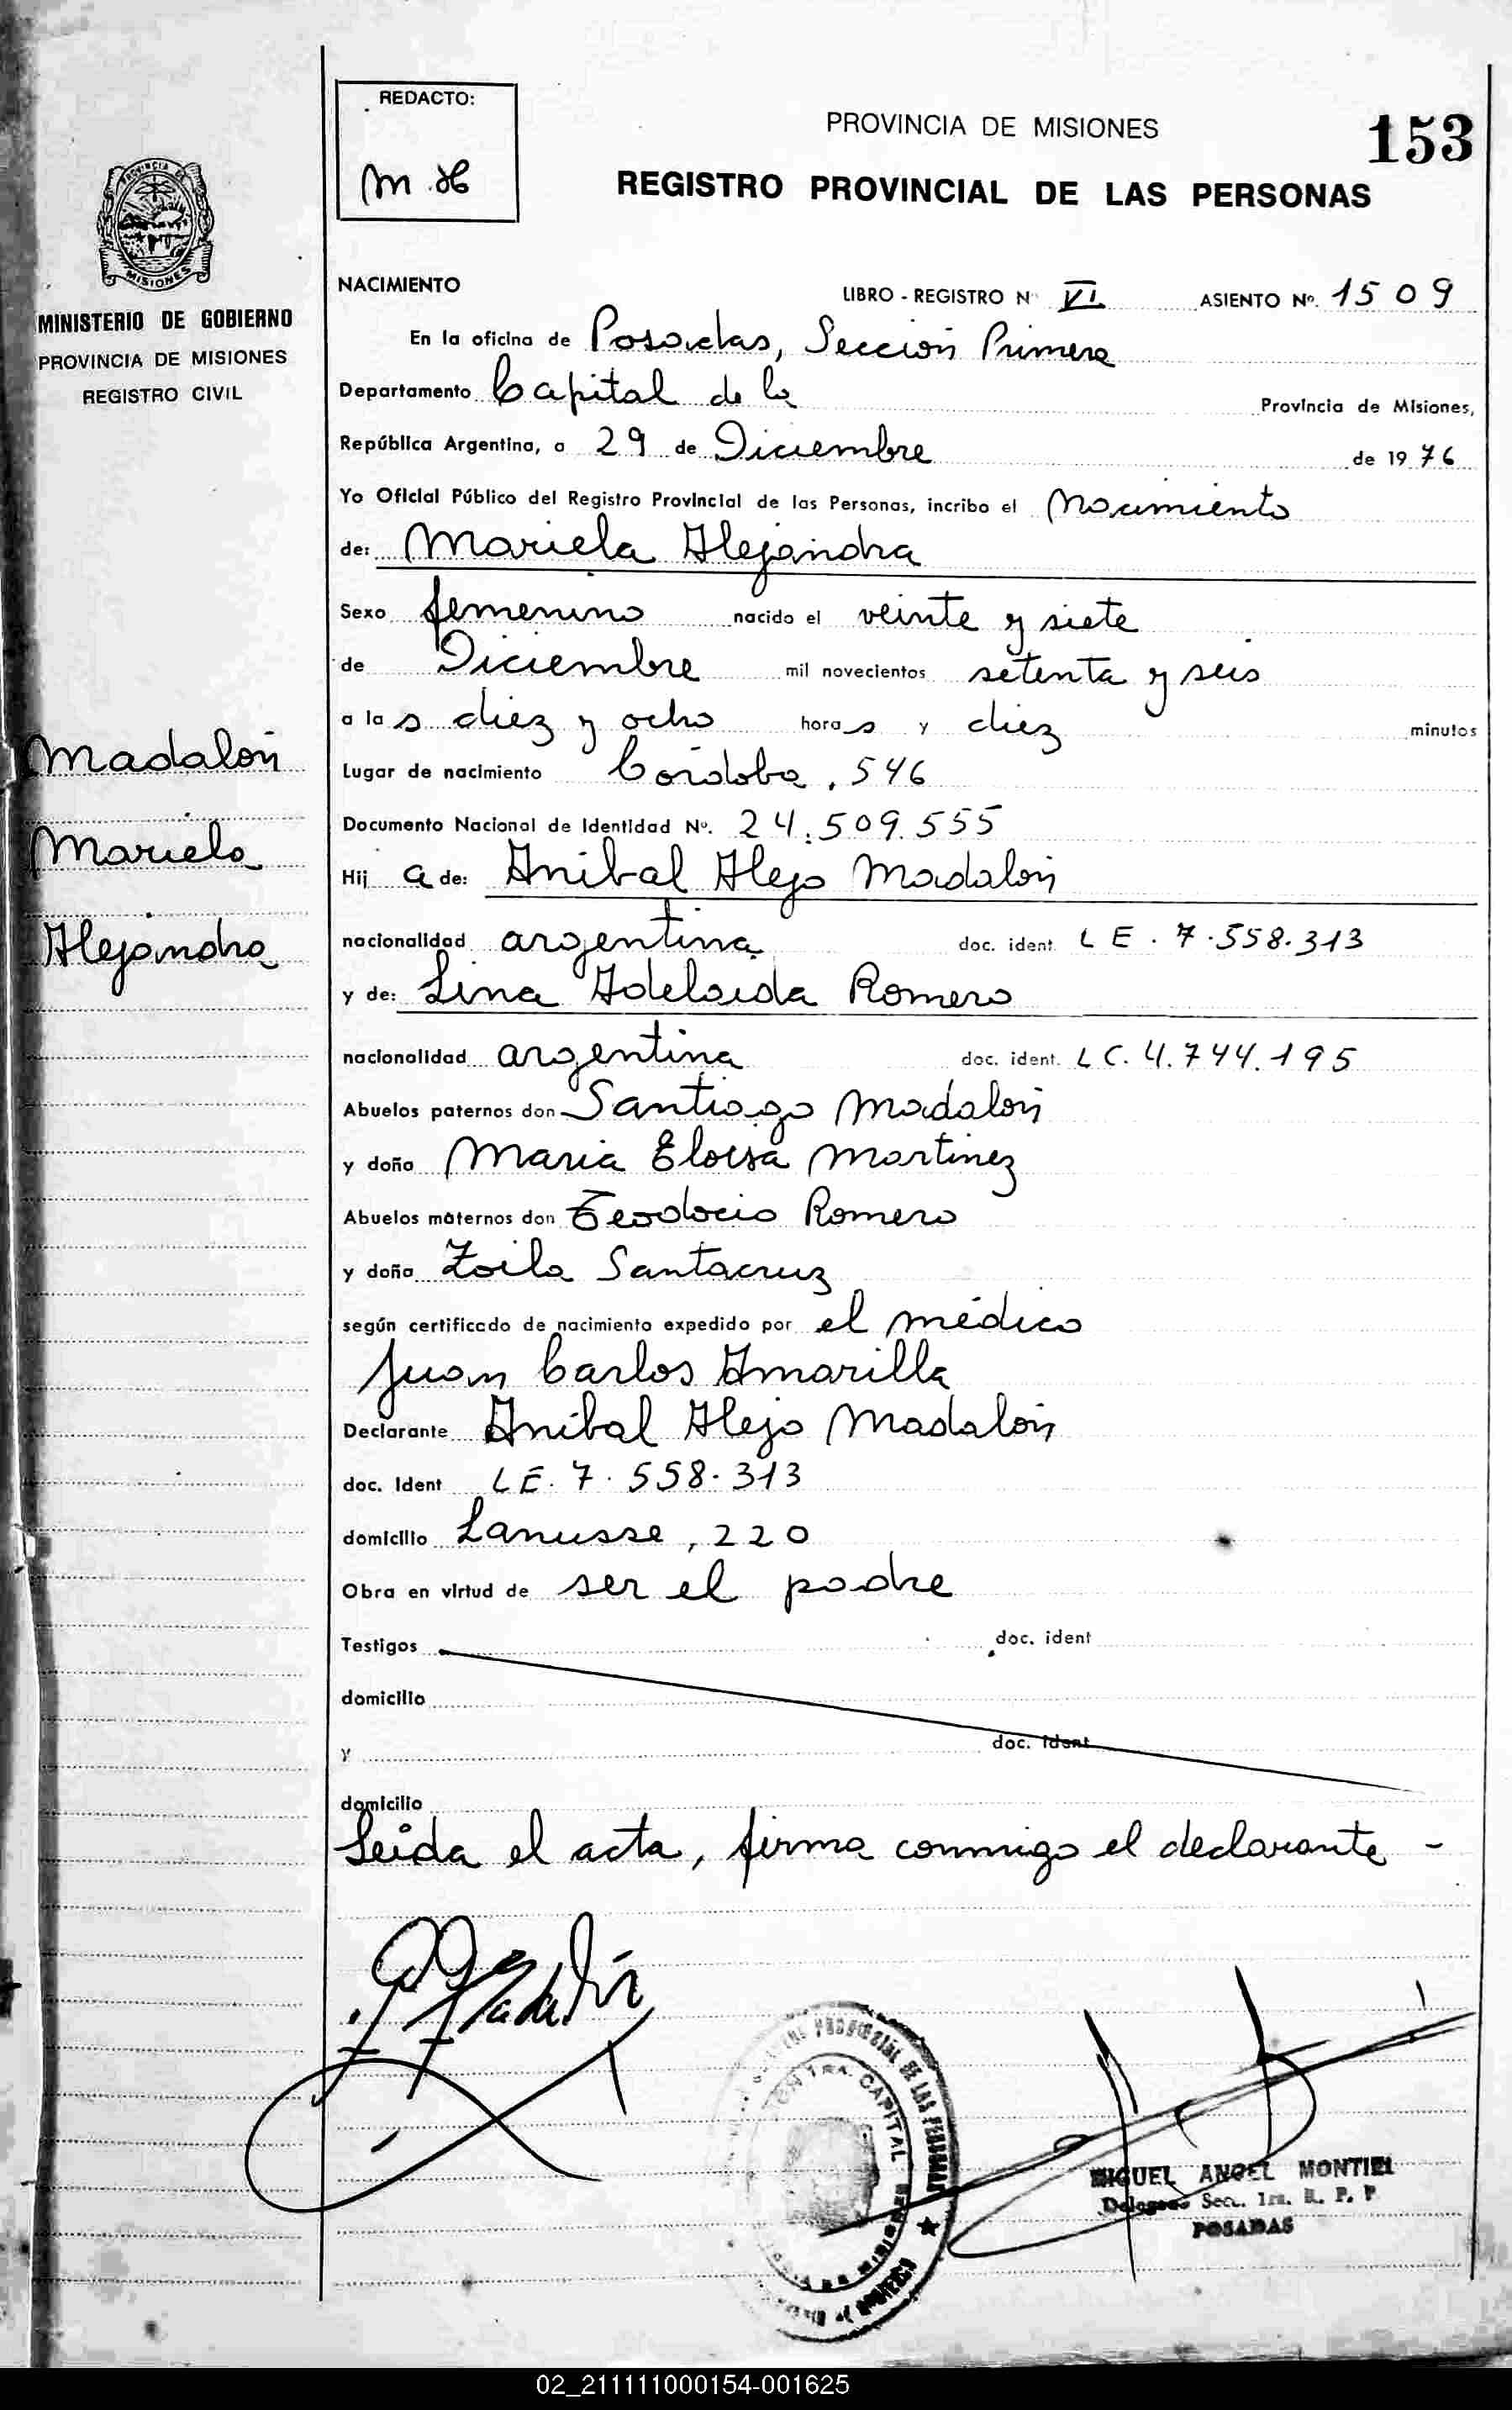 REDACTO:
PROVINCIA DE MISIONES
153
REGISTRO PROVINCIAL DE LAS PERSONAS
MISIONES
MINISTERIO DE GOBIERNO
PROVINCIA DE MISIONES
REGISTRO CIVIL
NACIMIENTO
LIBRO - REGISTRO Nº VI ASIENTO Nº. 1509
En la oficina de Posadas, Sección Primera
Departamento Capital de la Provincia de Misiones,
República Argentina, a 29 de Diciembre de 1976
Yo Oficial Público del Registro Provincial de las Personas, incribo el Nacimiento
de: Mariela Alejandra
Sexo femenino nacido el veinte y siete
de Diciembre mil novecientos setenta y seis
a las diez y ocho horas y diez minutos
Madalón
Mariela
Alejandra
Lugar de nacimiento Córdoba, 546
Documento Nacional de Identidad Nº. 24.509.555
Hija de: Anibal Alejo Madalón
nacionalidad argentina doc. ident. LE. 7.558.313
y de: Lina Adelaida Romero
nacionalidad argentina doc. ident. LC. 4.744.195
Abuelos paternos don Santiago Madalón
y doña Maria Eloisa Martinez
Abuelos maternos don Teodocio Romero
y doña Zoila Santacruz
según certificado de nacimiento expedido por el médico
Juan Carlos Amarilla
Declarante Anibal Alejo Madalón
doc. Ident LE. 7.558.313
domicilio Lanusse, 220
Obra en virtud de ser el padre
Testigos doc. ident
domicilio
y doc. ident
domicilio
Leida el acta, firma conmigo el declarante -
MIGUEL ANGEL MONTIEL
Delegado Secc. 1ra. R. P. P
POSADAS
02_211111000154-001625